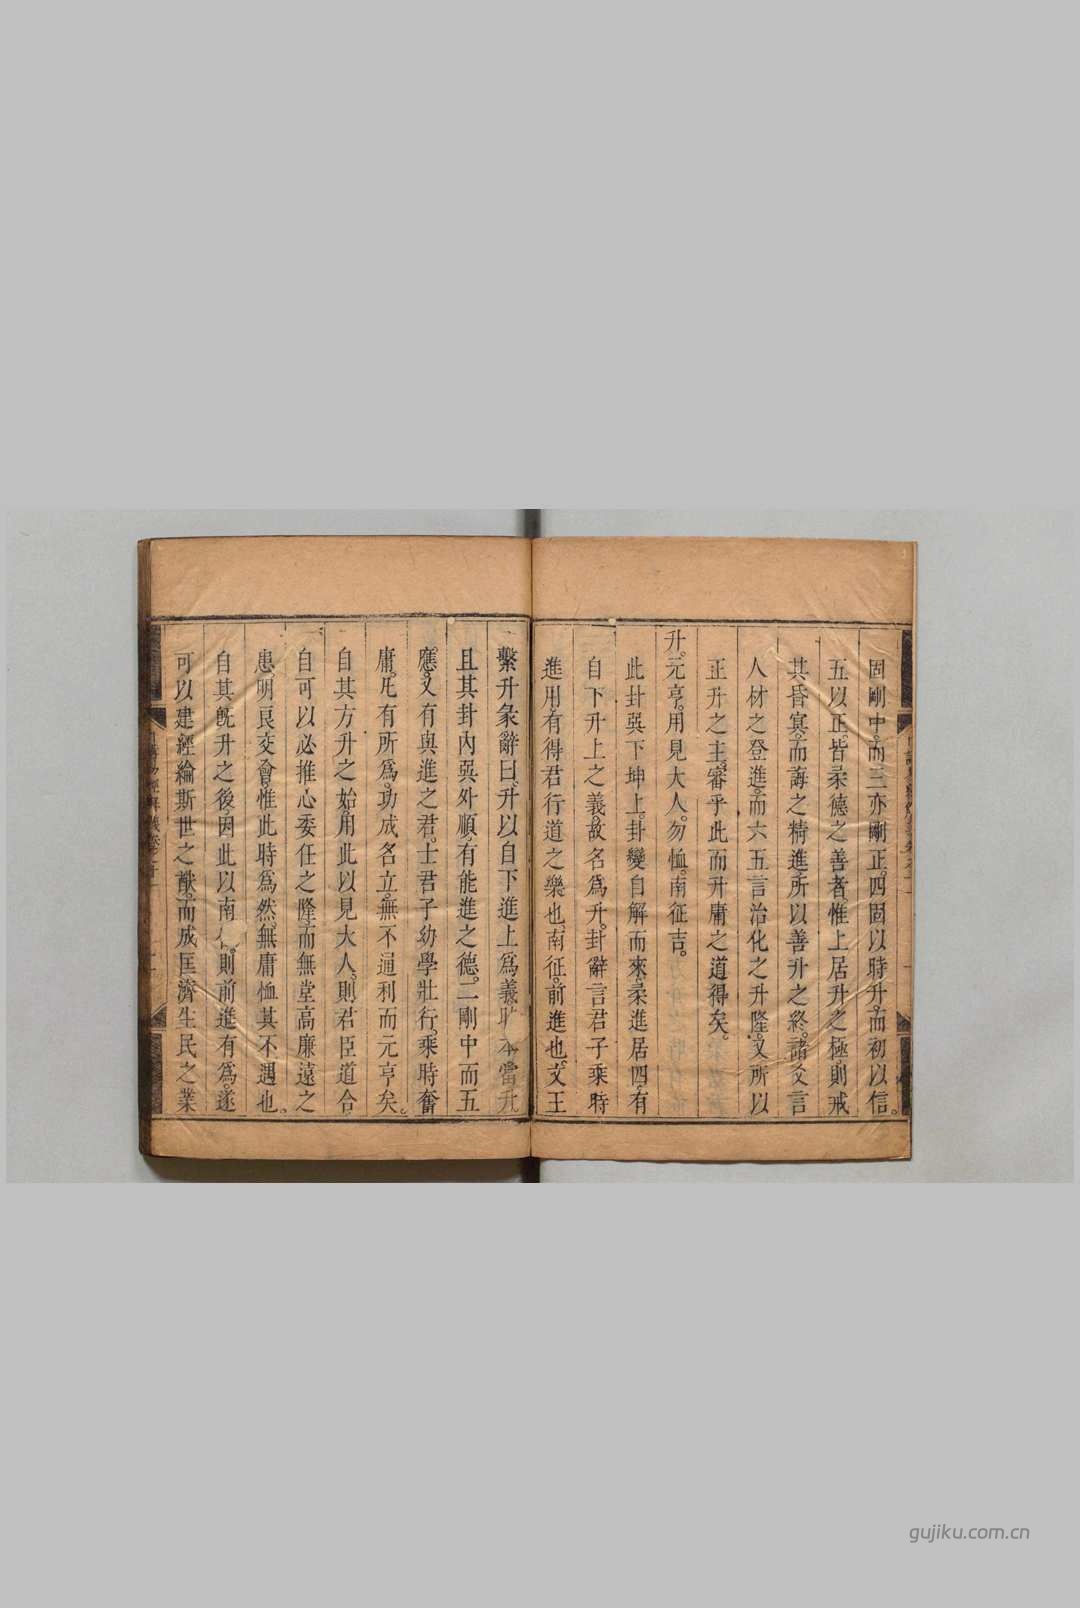 固剛中。而三亦剛正。四固以時升。而初以信。
五以正。皆柔德之善者。惟上居升之極。則戒
其昏冥。而誨之精進。所以善升之終。諸爻言
人材之登進。而六五言治化之升隆。又所以
正升之主。審乎此而升庸之道得矣。
升。元亨。用見大人。勿恤。南征吉。
此卦巽下坤上。卦變自解而來。柔進居四。有
自下升上之義。故名為升。卦辭言君子乘時
進用。有得君行道之樂也。南征。前進也。文王
繫升彖辭曰。升以自下進上為義。本當升
且其卦內巽外順。有能進之德。二剛中而五
應。又有與進之君。士君子幼學壯行。乘時奮
庸。凡有所為。功成名立。無不通利而元亨矣。
自其方升之始。用此以見大人。則君臣道合
自可以必推心委任之隆。而無堂高廉遠之
患。明良交會。惟此時為然。無庸恤其不遇也。
自其既升之後。因此以南。則前進有為。遂
可以建經綸斯世之猷。而成匡濟生民之業
gujiku.com.cn